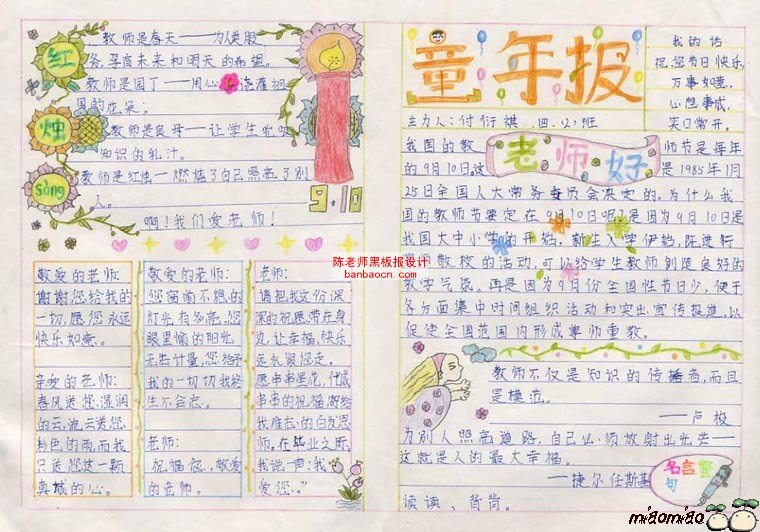 红
烛
Song
教师是春天——为人类服
务,孕育未来和明天的希望。
教师是园丁——用心浇灌祖
国的花朵。
教师是良母——让学生
知识的乳汁。
教师是红烛——燃烧了自己照亮了别
人。
啊!我们爱老师!
9.10
敬爱的老师:
谢谢您给我的
一切,愿您永远
快乐如意。
亲爱的老师:
春风送您湿润
的云,流云送您
彩色的雨,而我
只送您这一颗
真诚的心。
敬爱的老师:
您窗前不熄的
灯光有多亮,您
眼里愉的阳光
无法计量,您给予
我的一切我终
生不会忘。
老师:
祝福您,敬爱
的老师。
老师:
请把我这份深
深的祝愿带在身
边,让幸福、快乐
永永跟您走。
愿串串星花,代成
串串的祝福,赐给
我难忘的白发恩
师。在毕业之际
我说一声:我
爱您!"
陈老师黑板报设计
banbaocn.com
童年报
我的话
祝您节日快乐,
万事如意,
心想事成,
笑口常开。
主力人:付衍祺 四.(2)班
老师好
我国的教师节是每年
的9月10日,这是1985年1月
25日全国人大常务委员会决定的。为什么我
国的教师节要定在9月10日呢?是因为9月10日是
我国大中小学的开始,新生入学伊始,
教学气氛。再是因为9月份全国性节日少,便于
各方面集中时间组织活动和突出宣传报道,以
促使全国范围内形成尊师重教。
教师不仅是知识的传播者,而且
是模范。
——卢梭
为别人照亮道路,自己必须放射出光芒—
这就是人的最大幸福。
——捷尔任斯基
名言警
句
读读、背背。
miaomiao